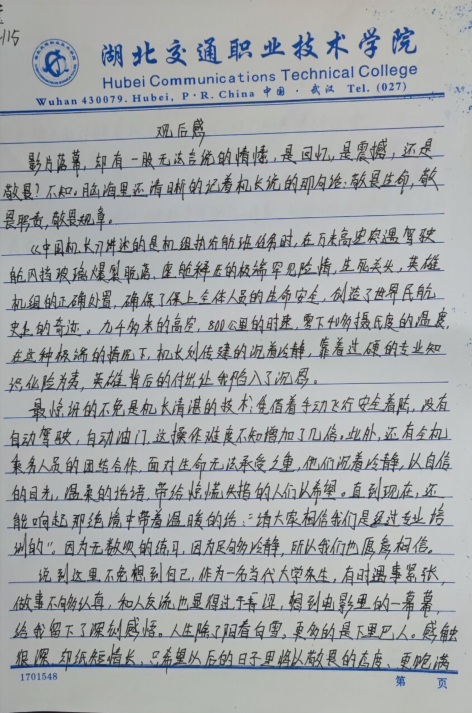 115
湖北交通职业技术学院
Hubei Communications Technical College
Wuhan 430079. Hubei, P·R. China 中国·武汉 Tel. (027)
观后感
影片落幕，却有一股无法言统的情愫，是回忆，是震撼，还是
敬畏？不知。脑海里还清晰的记着机长说的那句话：敬畏生命，敬
畏职责，敬畏规章。
《中国机长》讲述的是机组执行航班任务时，在万米高空突遇驾驶
舱风挡玻璃爆裂脱落、座舱释压的极端罕见险情，生死关头，英雄
机组的正确处置，确保了机上全体人员的生命安全，创造了世界民航
史上的奇迹。九千多米的高空，800公里的时速，零下40多摄氏度的温度，
在这种极端的情况下，机长刘传建的沉着冷静，靠着过硬的专业知
识化险为夷，英雄背后的付出让我陷入了沉思。
最惊讶的不免是机长清湛的技术：凭借着手动飞行安全着陆，没有
自动驾驶，自动油门，这操作难度不知增加了几倍。此外，还有全机
乘务人员的团结合作，面对生命无法承受之重，他们沉着冷静，以自信
的目光，温柔的话语，带给慌慌失措的人们以希望。直到现在，还
能响起那绝境中带着温暖的话：“请大家相信我们是经过专业培
训的”。因为无数次的练习，因为足够冷静，所以我们也愿意相信。
说到这里不免想到自己，作为一名当代大学生，有时遇事紧张，
做事不够认真，和人交流也显得过于青涩，想到电影里的一幕幕，
给我留下了深刻感悟。人生除了阳春白雪，更多的是下里巴人。感触
很深，却纸短情长，只希望以后的日子里将以敬畏的态度、更饱满
1701548
第 页